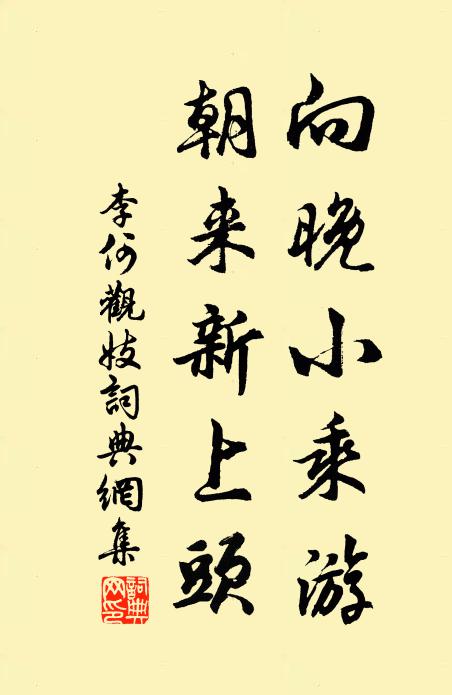 向晚小乘游
朝来新上頭
李何觀妓詞典網集
詞典网印